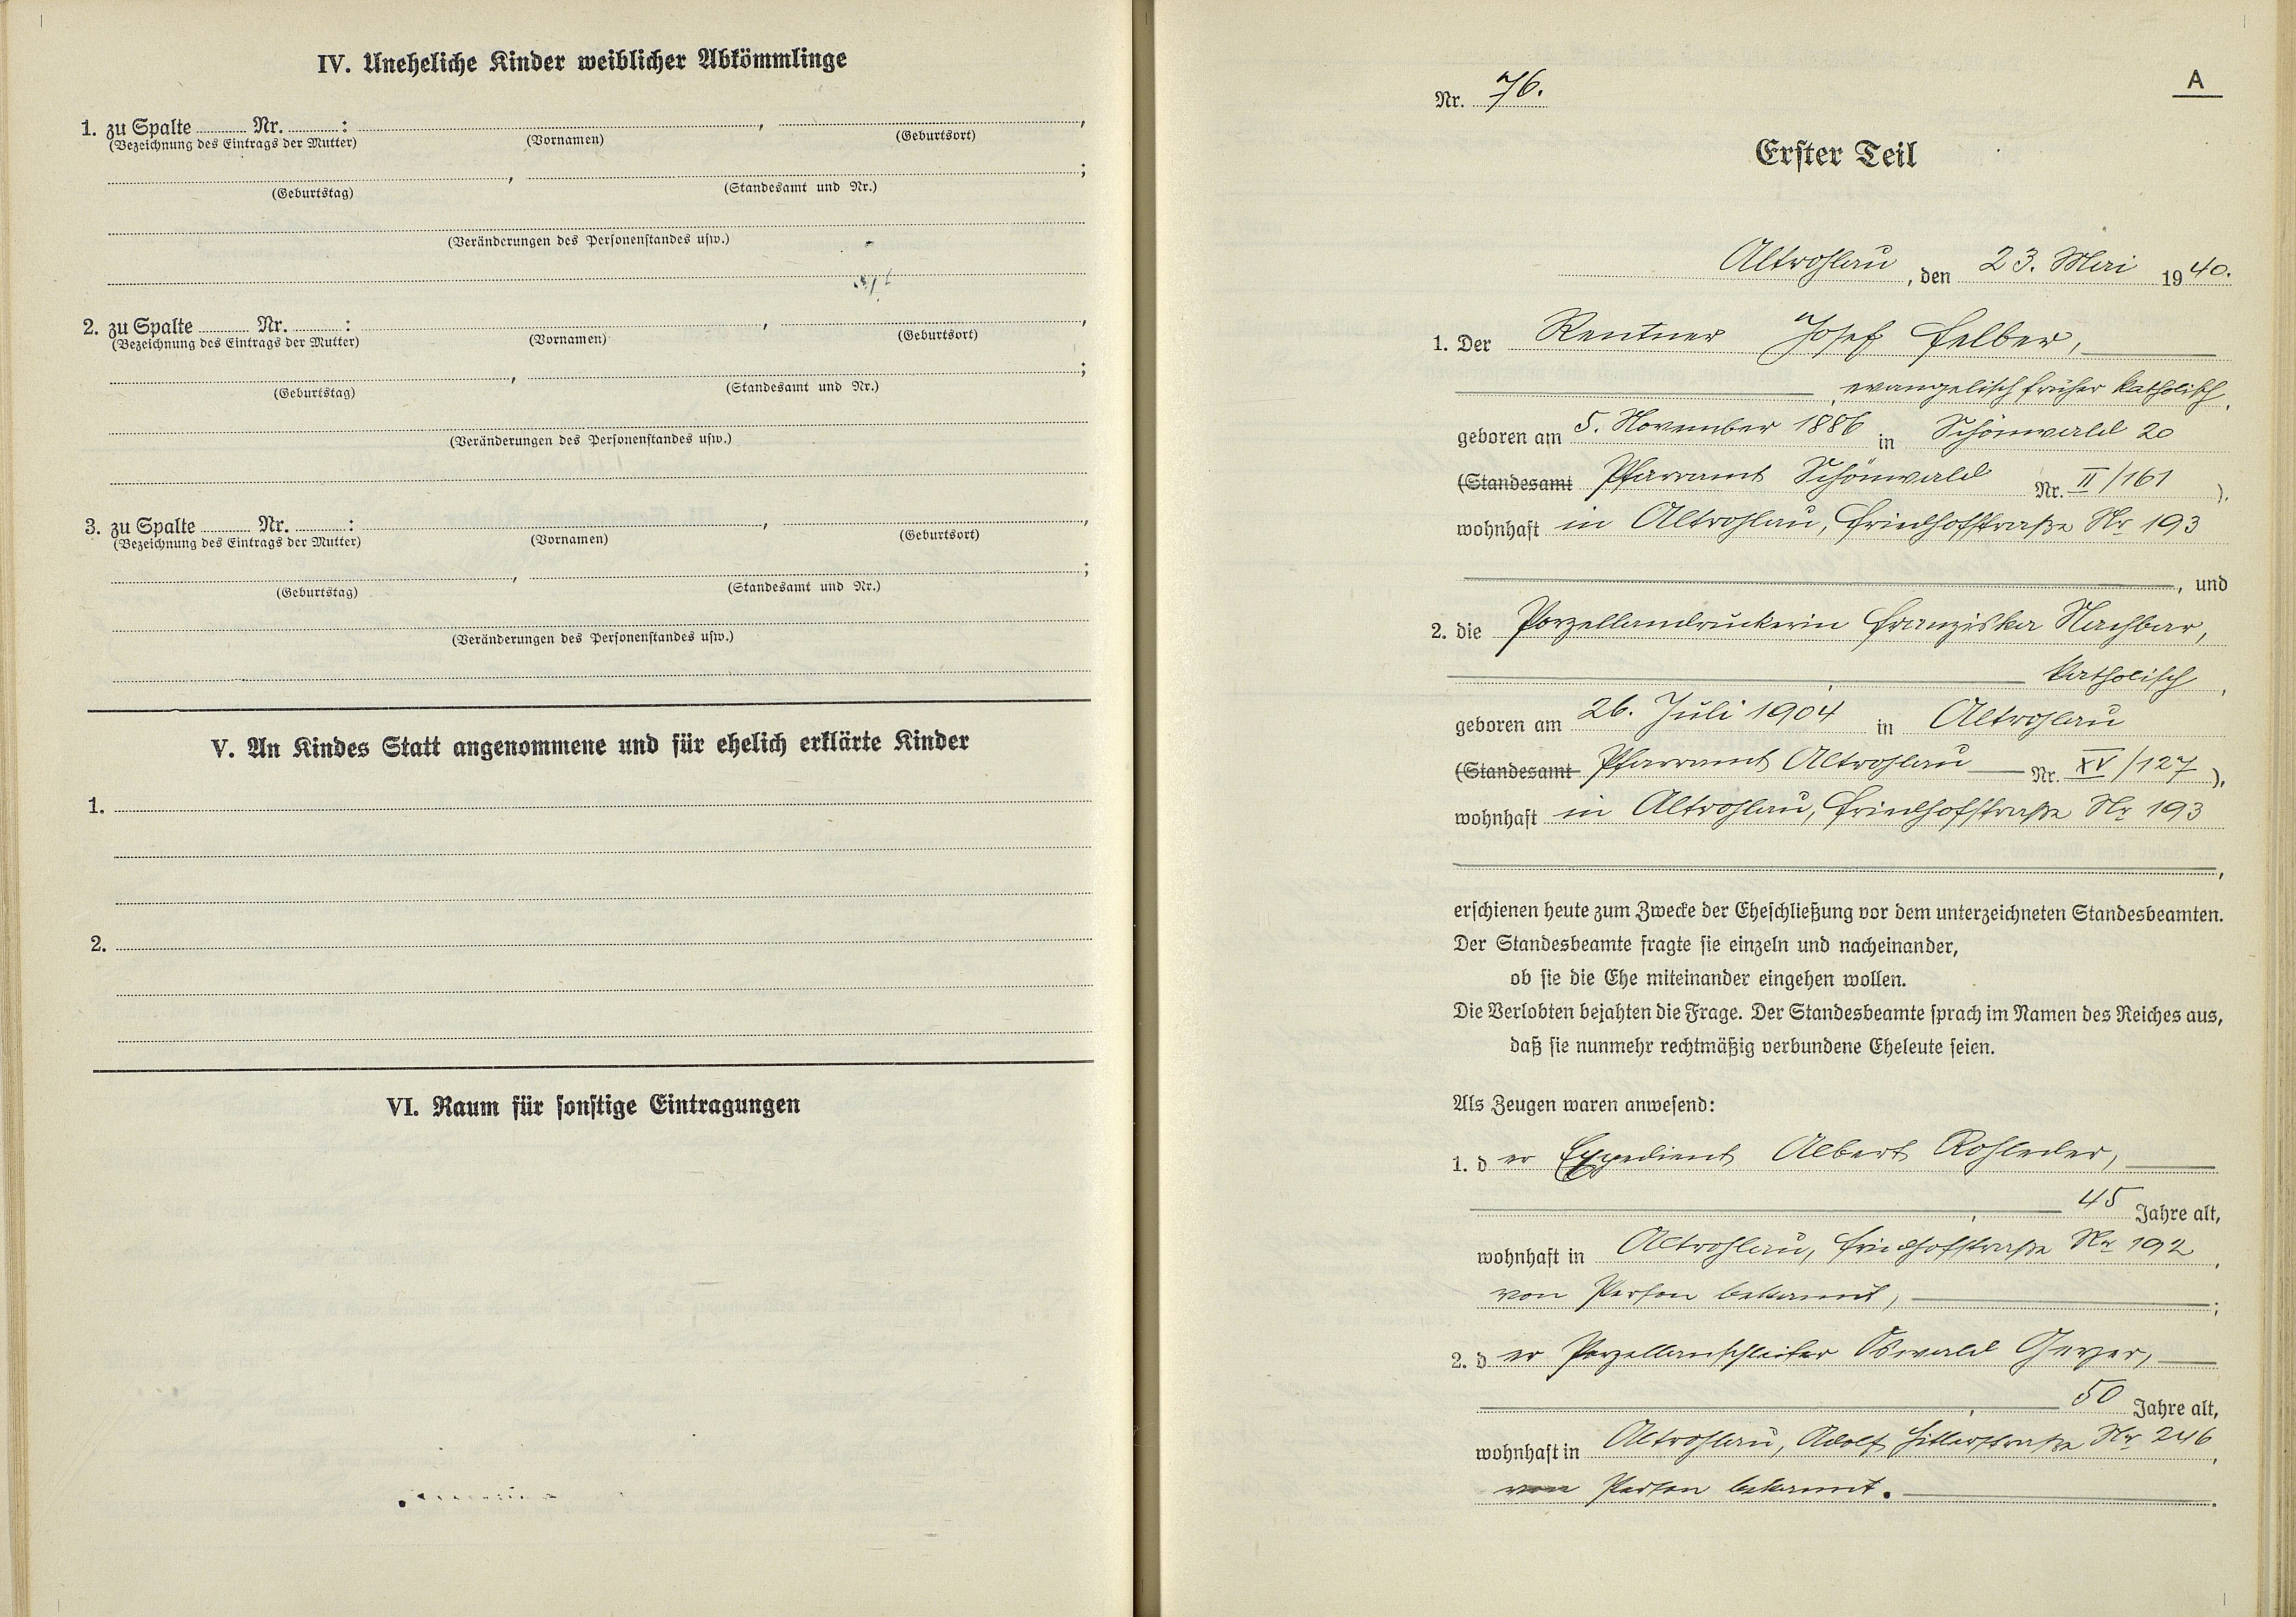 IV. Uneheliche Kinder weiblicher Abkömmlinge
1. zu Spalte Nr. : , ,
(Bezeichnung des Eintrags der Mutter) (Vornamen) (Geburtsort)
, ;
(Geburtstag) (Standesamt und Nr.)
(Veränderungen des Personenstandes usw.)
2. zu Spalte Nr. : , ,
(Bezeichnung des Eintrags der Mutter) (Vornamen) (Geburtsort)
, ;
(Geburtstag) (Standesamt und Nr.)
(Veränderungen des Personenstandes usw.)
3. zu Spalte Nr. : , ,
(Bezeichnung des Eintrags der Mutter) (Vornamen) (Geburtsort)
, ;
(Geburtstag) (Standesamt und Nr.)
(Veränderungen des Personenstandes usw.)
V. An Kindes Statt angenommene und für ehelich erklärte Kinder
1.
2.
VI. Raum für sonstige Eintragungen
A
Nr. 76.
Erster Teil
Altrohlau, den 23. Mai 1940.
1. Der Rentner Josef Felber,
, evangelisch früher katholisch,
geboren am 5. November 1886 in Schönwald 20
(Standesamt Pfarramt Schönwald Nr. II/161 ),
wohnhaft in Altrohlau, Friedhofstraße Nr 193
, und
2. die Porzellandruckerin Franziska Nachbar,
, katholisch,
geboren am 26. Juli 1904 in Altrohlau
(Standesamt Pfarramt Altrohlau Nr. XV/127 ),
wohnhaft in Altrohlau, Friedhofstraße Nr 193
,
erschienen heute zum Zwecke der Eheschließung vor dem unterzeichneten Standesbeamten.
Der Standesbeamte fragte sie einzeln und nacheinander,
ob sie die Ehe miteinander eingehen wollen.
Die Verlobten bejahten die Frage. Der Standesbeamte sprach im Namen des Reiches aus,
daß sie nunmehr rechtmäßig verbundene Eheleute seien.
Als Zeugen waren anwesend:
1. der Expedient Albert Rohleder,
, 45 Jahre alt,
wohnhaft in Altrohlau, Friedhofstraße Nr 192,
von Person bekannt, ;
2. der Porzellanschleifer Oswald
, 50 Jahre alt,
wohnhaft in Altrohlau, Adolf Hitlerstraße Nr 246,
von Person bekannt. .